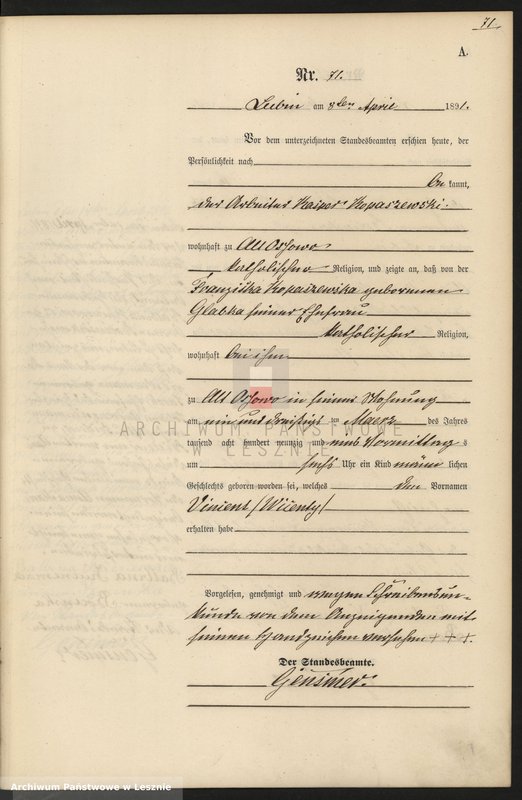 71
A.
Nr. 71.
Lubin am 8ten April 1891.
Vor dem unterzeichneten Standesbeamten erschien heute, der
Persönlichkeit nach
be kannt,
der Arbeiter Kasper Kopaszewski
wohnhaft zu Alt Osowo
katholischer Religion, und zeigte an, daß von der
Franziska Kopaszewska geborenen
Glabka seiner Ehefrau
katholischer Religion,
wohnhaft bei ihm
zu Alt Osowo in seiner Wohnung
am ein und dreißigs ten Maerz des Jahres
tausend acht hundert neunzig und eins Vormittag s
um sechs Uhr ein Kind männ lichen
Geschlechts geboren worden sei, welches den Vornamen
Vincent (Wicenty)
erhalten habe
Vorgelesen, genehmigt und wegen Schreibensun-
kunde von dem Anzeigenden mit
seinem Handzeichen versehen + + +
Der Standesbeamte.
Gensmer
ARCHIWUM PAŃSTWOWE
W LESZNIE
Archiwum Państwowe w Lesznie